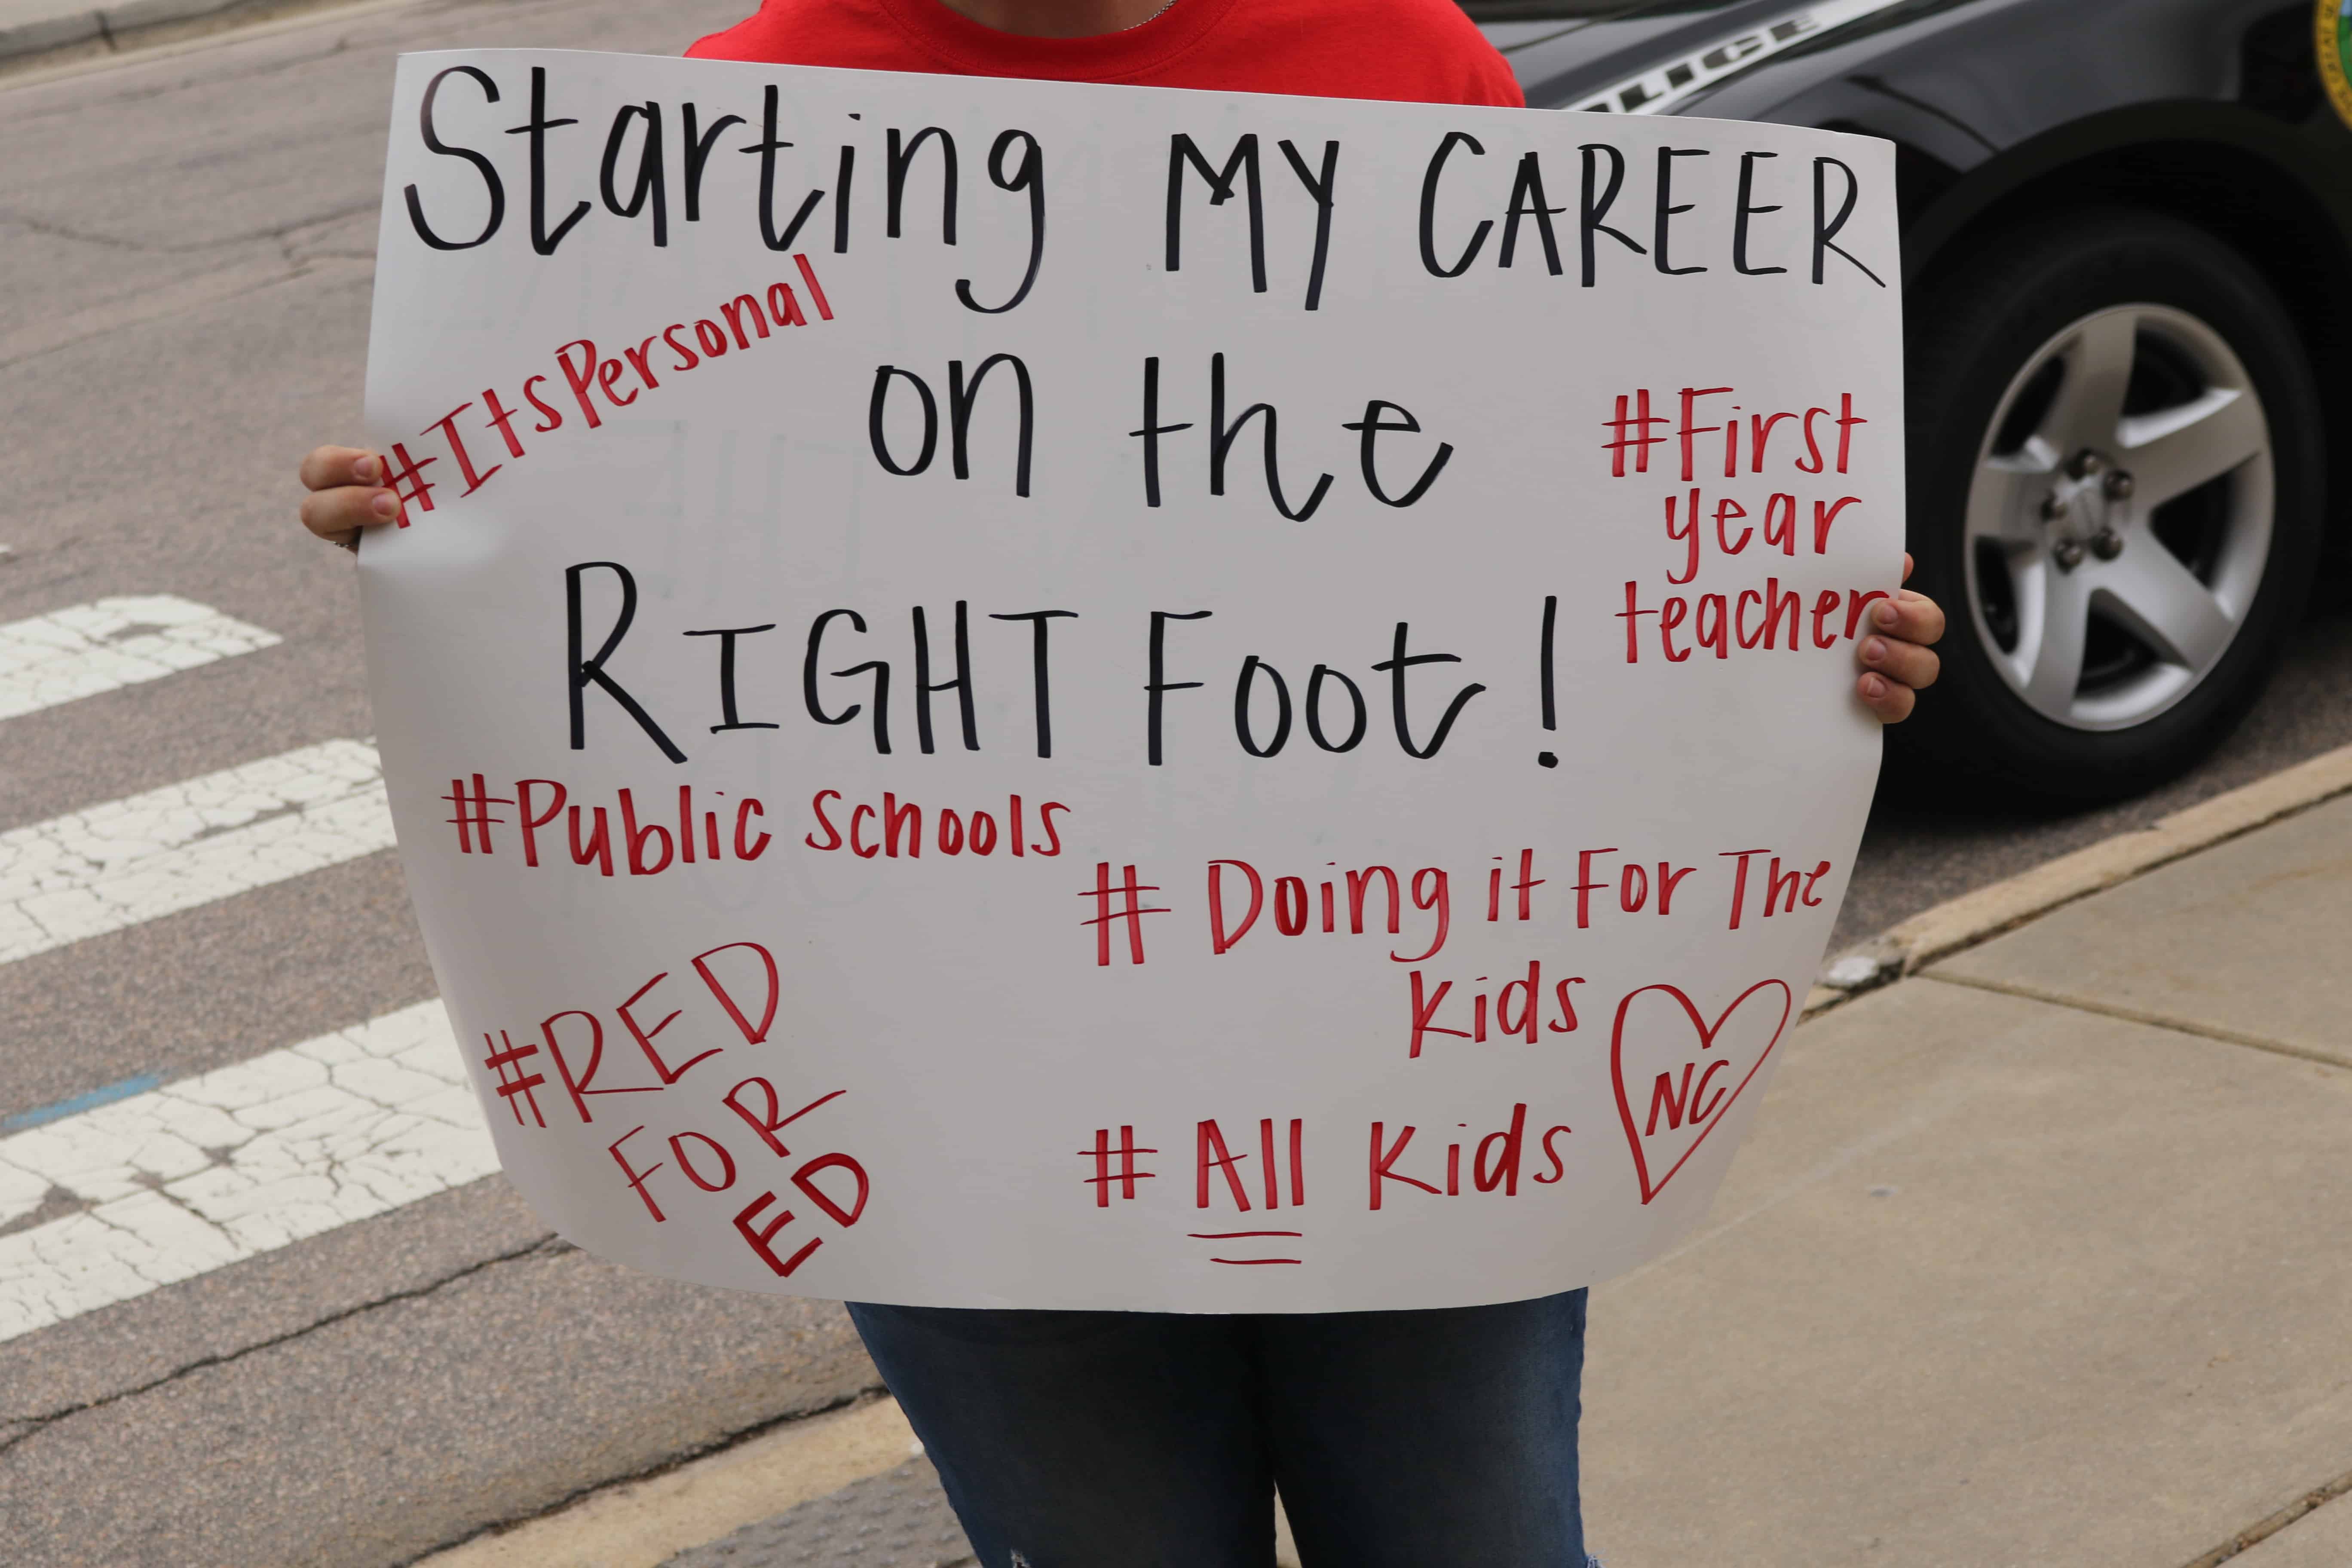 POLICE
Starting MY CAREER
#ItsPersonal
on the
#First
year
teacher
RIGHT Foot!
#Public Schools
# Doing it For The
Kids
#RED
FOR
ED
# All Kids
NC